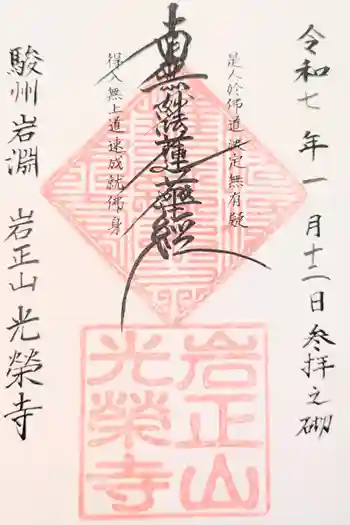 令和七年一月十二日参拝之砌
是人於佛道決定無有疑
南無妙法蓮華経
得入無上道速成就佛身
駿州岩淵 岩正山 光榮寺
岩正山
光榮寺